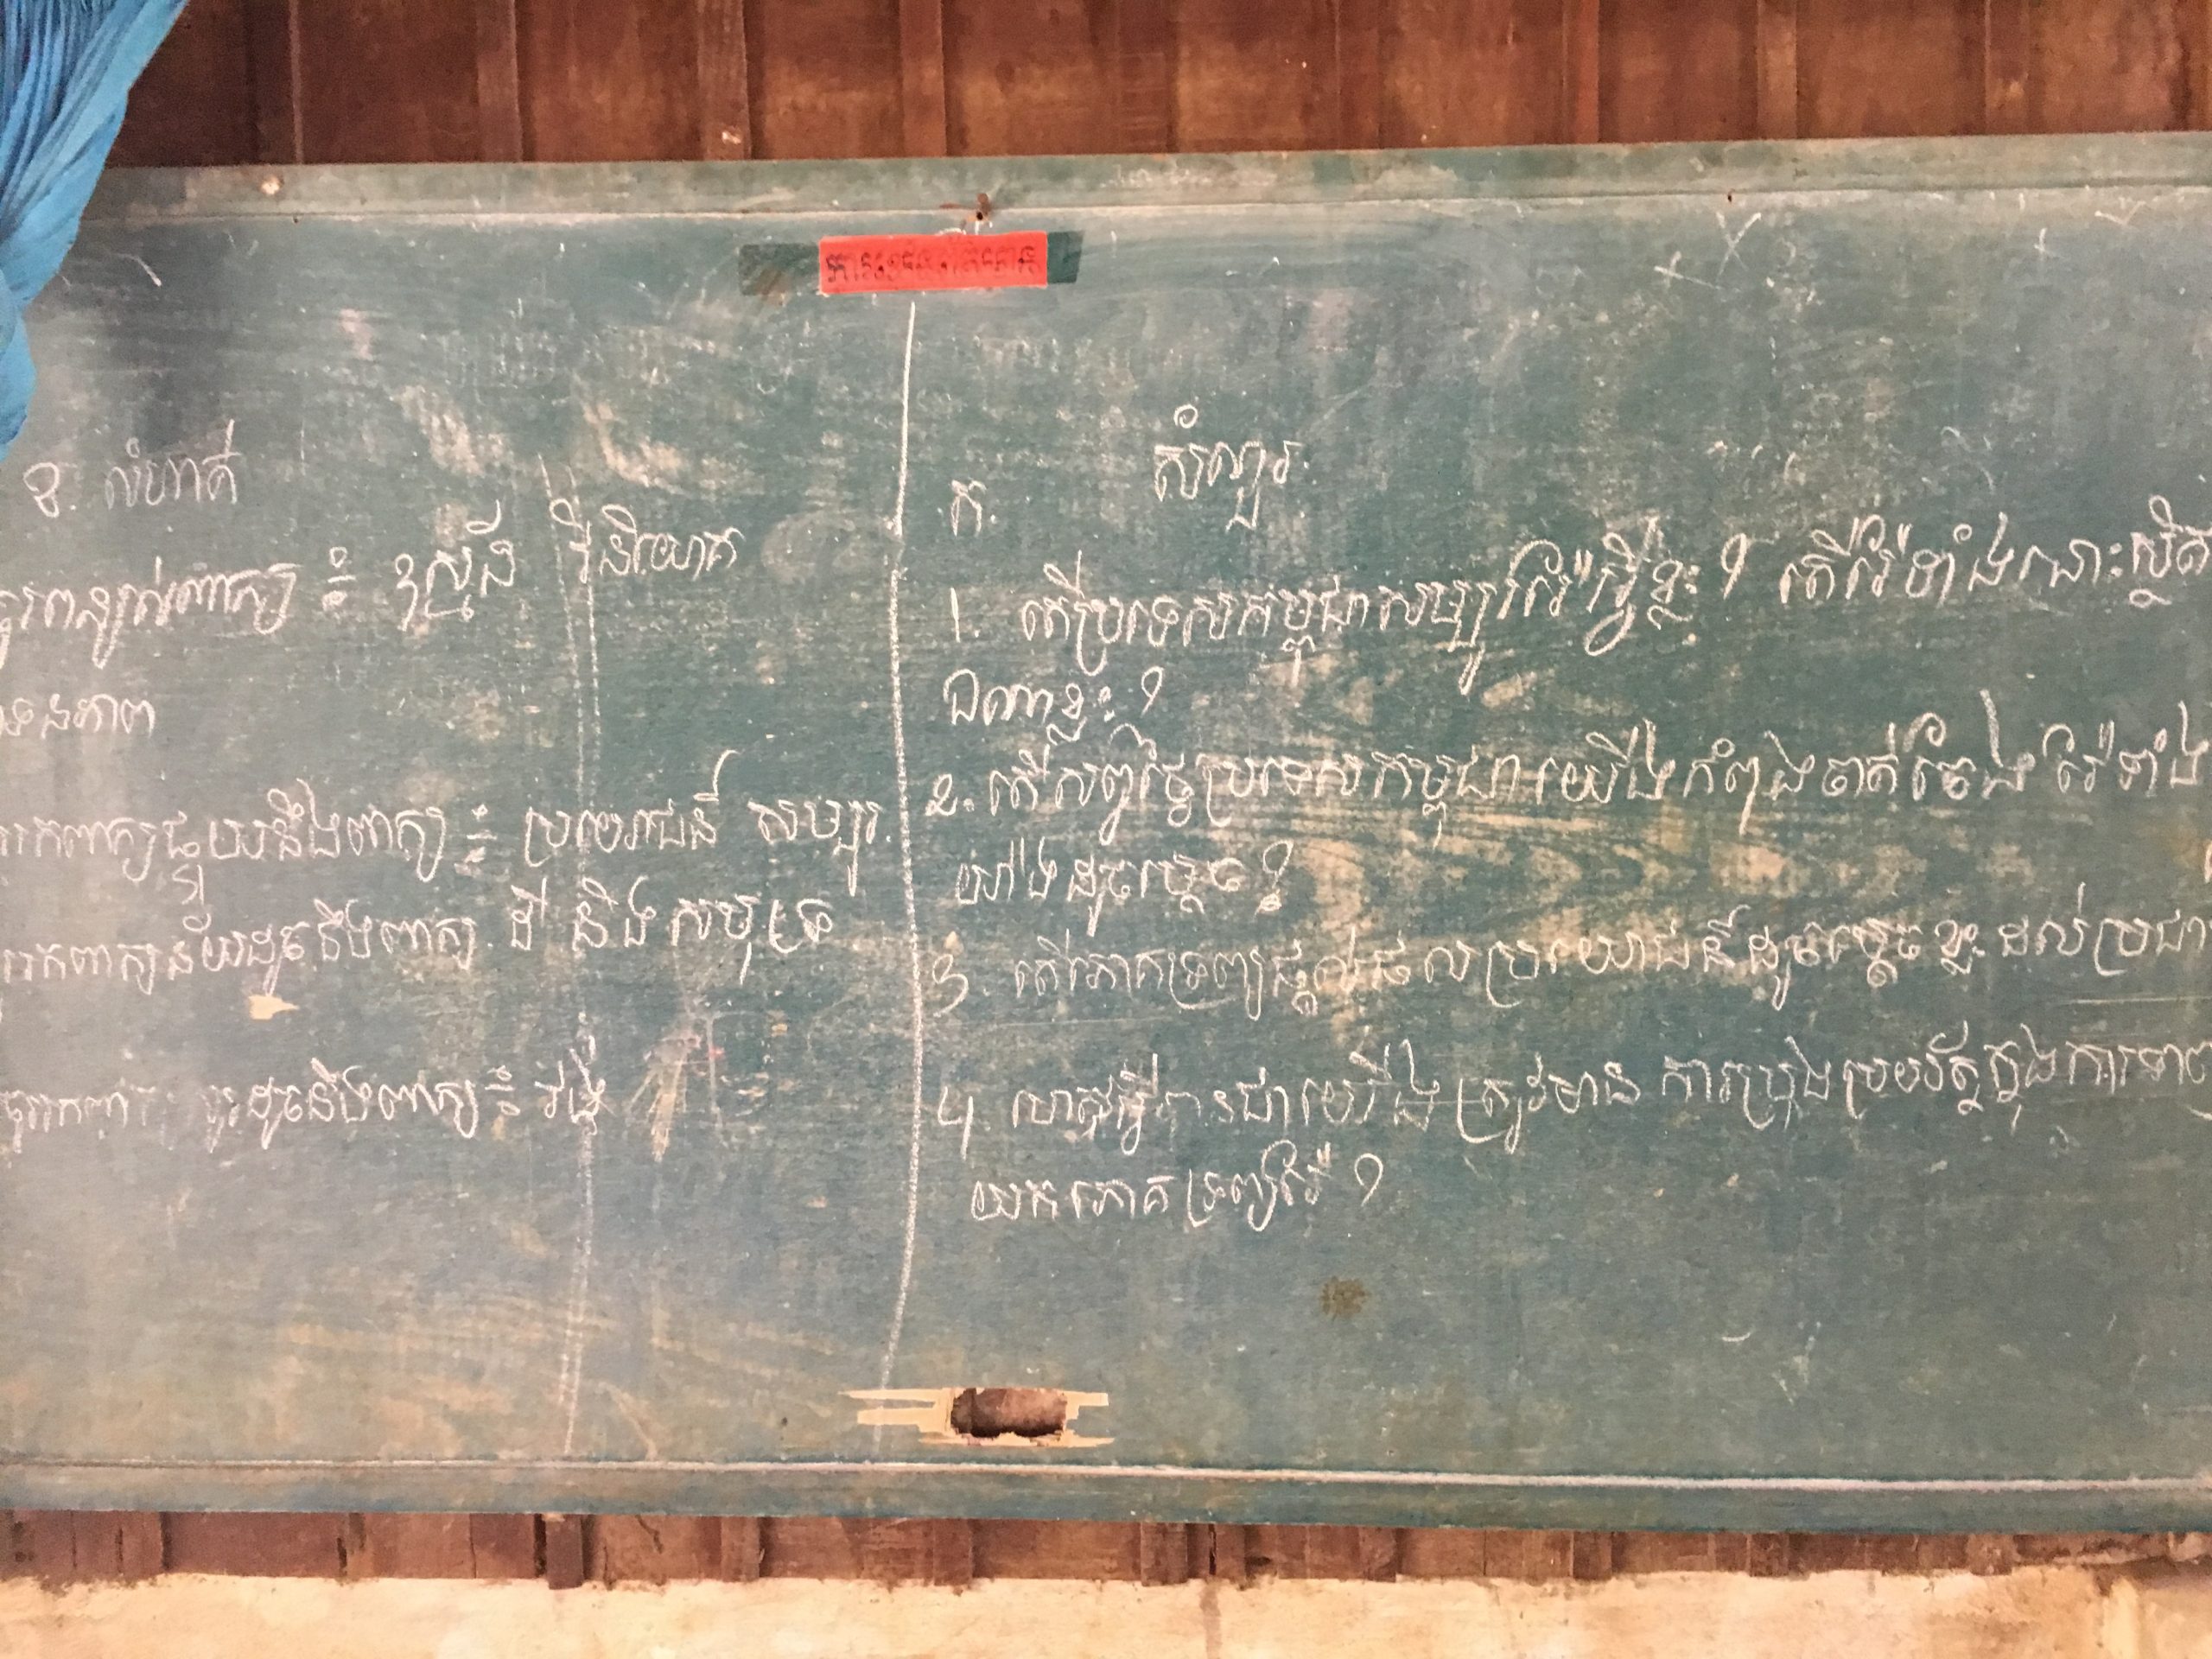 ខ. លំហាត់
ពន្យល់ពាក្យ ៖ ឧស្ម័ន វិនិយោគ
ធនភាព
រកពាក្យផ្ទុយនឹងពាក្យ ៖ ប្រយោជន៍ សម្បូរ.
រកពាក្យន័យដូចនឹងពាក្យ. ដី និង សមុទ្រ
ដូចនឹងពាក្យ ៖ រ៉ែ
ក. សំណួរ
1. តើប្រទេសកម្ពុជាសម្បូររ៉ែអ្វីខ្លះ? តើរ៉ែទាំងណោះស្ថិត
ឯណាខ្លះ?
2. តើសព្វថ្ងៃប្រទេសកម្ពុជាយើងកំពុងចាត់ចែង រ៉ែទាំង
យ៉ាងដូចម្ដេច?
3. តើភោគទ្រព្យផ្ដល់ផលប្រយោជន៍ដូចម្ដេចខ្លះ ដល់ប្រជា
4. ហេតុអ្វីបានជាយើងត្រូវមាន ការប្រុងប្រយ័ត្នក្នុងការទាញ
យកភោគទ្រព្យរ៉ែ?